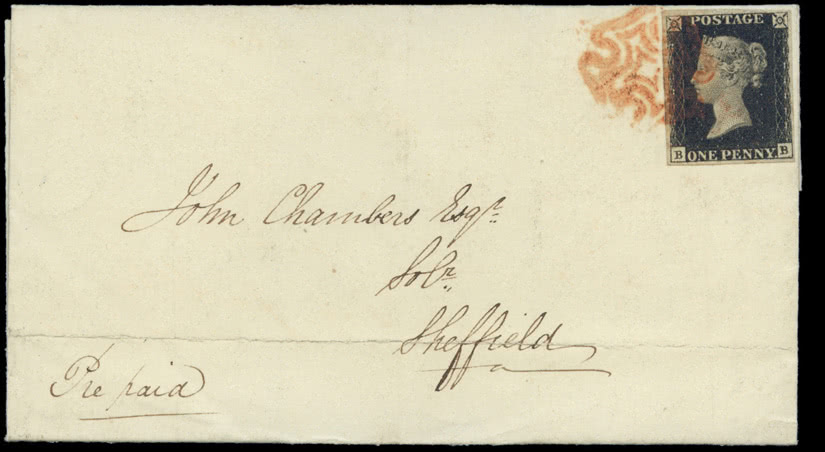 POSTAGE
B B
ONE PENNY
John Chambers Esqr.
Solr.
Sheffield
Pre paid